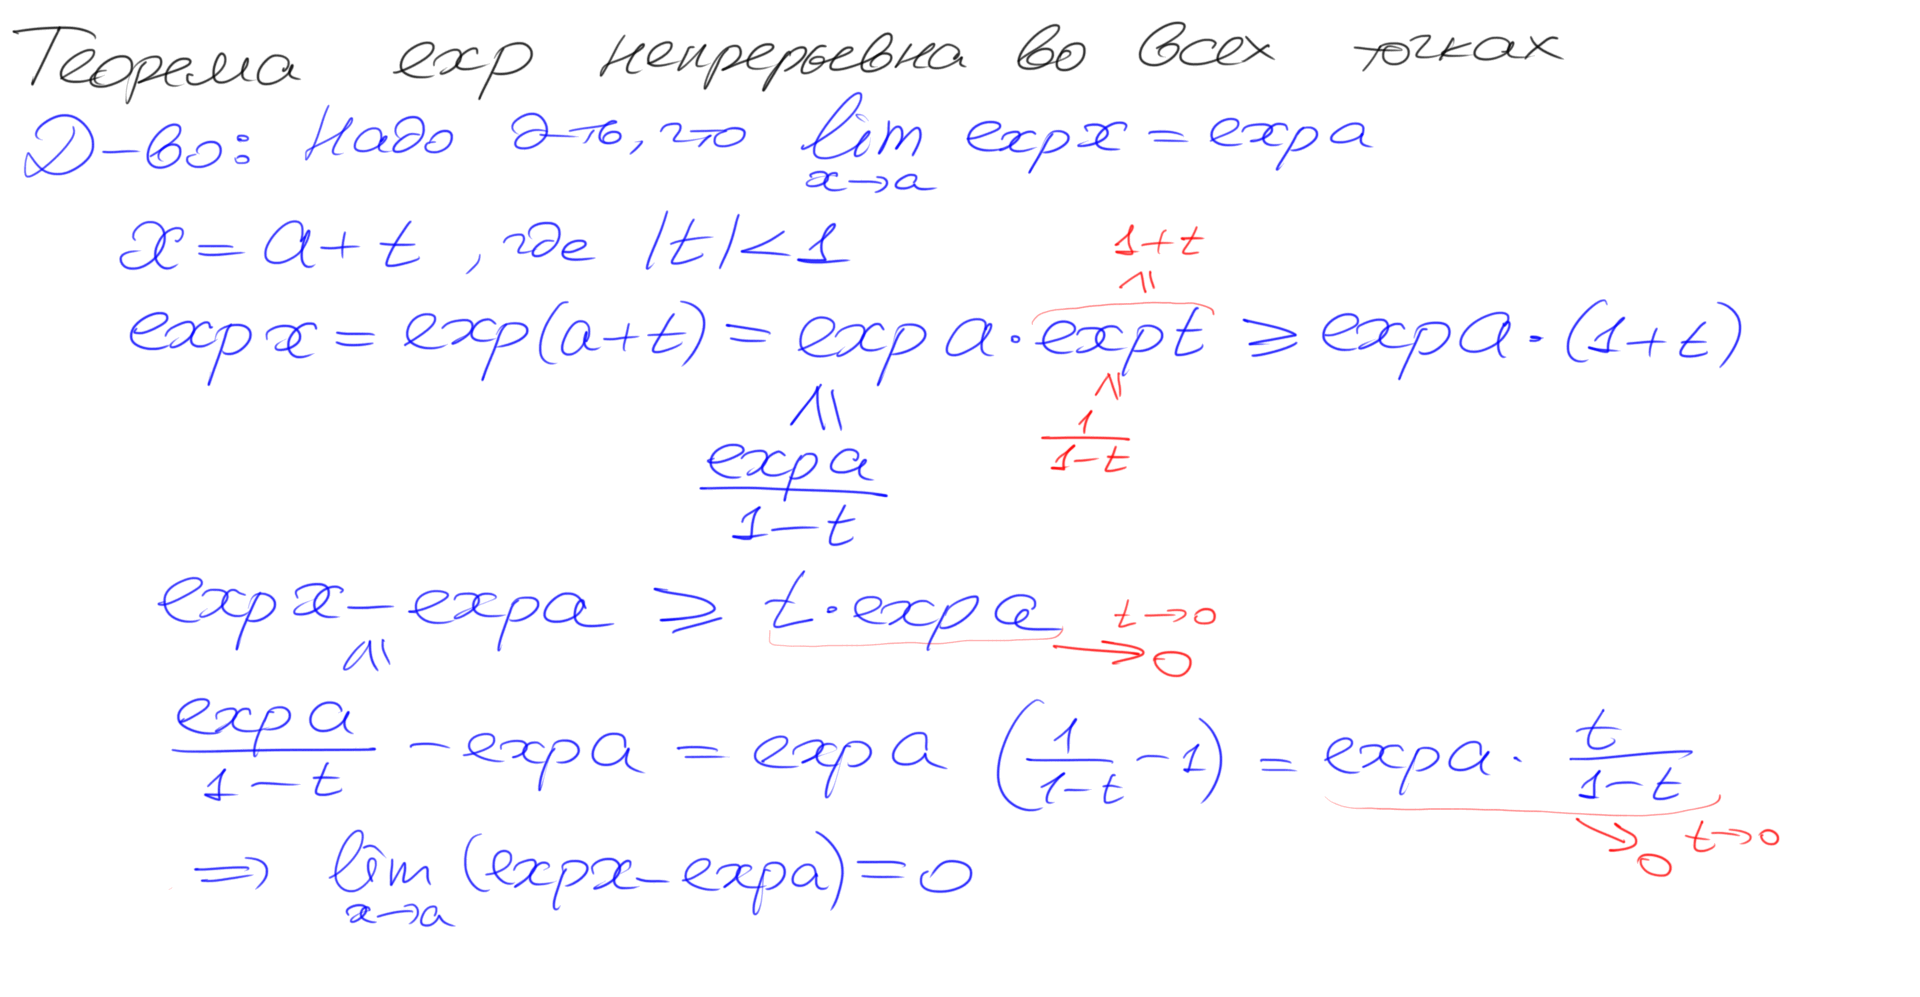 Теорема exp непрерывна во всех точках
Д-во: Надо д-ть, что lim exp x = exp a
x→a
x = a + t , где |t| < 1
1+t
≤
exp x = exp(a+t) = exp a · exp t ≥ exp a · (1+t)
≤
≤
1
exp a
1-t
1-t
exp x - exp a ≥ t · exp a
t→0
→ 0
≤
exp a / 1-t - exp a = exp a (1 / 1-t - 1) = exp a · t / 1-t
→ 0 t→0
⇒ lim (exp x - exp a) = 0
x→a